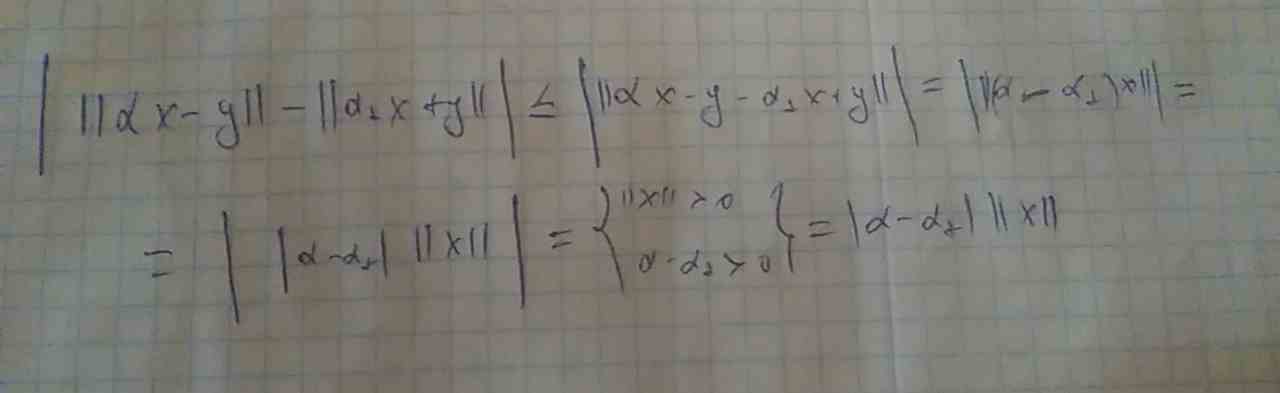 | ||αx-y|| - ||α₁x+y|| | ≤ | ||αx-y-α₁x+y|| | = | ||(α-α₁)x|| | =
= | |α-α₁| ||x|| | = { ||x|| > 0 α-α₁ > 0 } = |α-α₁| ||x||